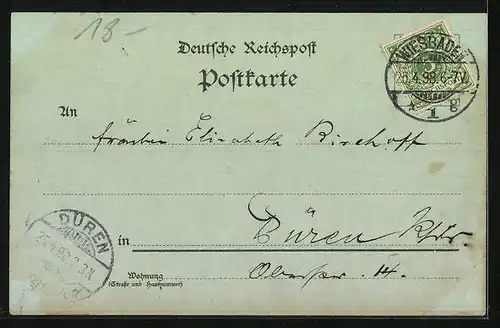 18-
Deutsche Reichspost
Postkarte
WIESBADEN
4.98 6-7N.
1
An
Fräulein Elisabeth Bischoff
DÜREN
in Düren
Wohnung
(Straße und Hausnummer)
Oberstr. 14.